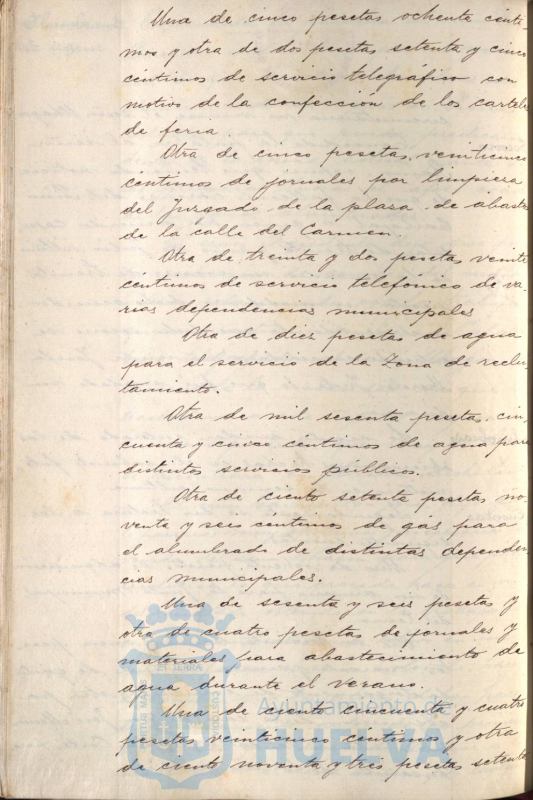 Una de cinco pesetas ochenta cénti-
mos y otra de dos pesetas setenta y cinco
céntimos de servicio telegráfico con
motivo de la confección de los carteles
de feria.
Otra de cinco pesetas, veinticinco
céntimos de jornales por limpieza
del Juzgado de la plaza de abastos
de la calle del Carmen.
Otra de treinta y dos pesetas veinte
céntimos de servicio telefónico de va-
rias dependencias municipales
Otra de diez pesetas de agua
para el servicio de la Zona de reclu-
tamiento.
Otra de mil sesenta pesetas, cin-
cuenta y cinco céntimos de agua para
distintos servicios públicos.
Otra de ciento setenta pesetas no-
venta y seis céntimos de gas para
el alumbrado de distintas dependen-
cias municipales.
Una de sesenta y seis pesetas y
otra de cuatro pesetas de jornales y
materiales para abastecimiento de
agua durante el verano.
Una de ciento cincuenta y cuatro
pesetas veinticinco céntimos y otra
de ciento noventa y tres pesetas setenta
Ayuntamiento de
HUELVA